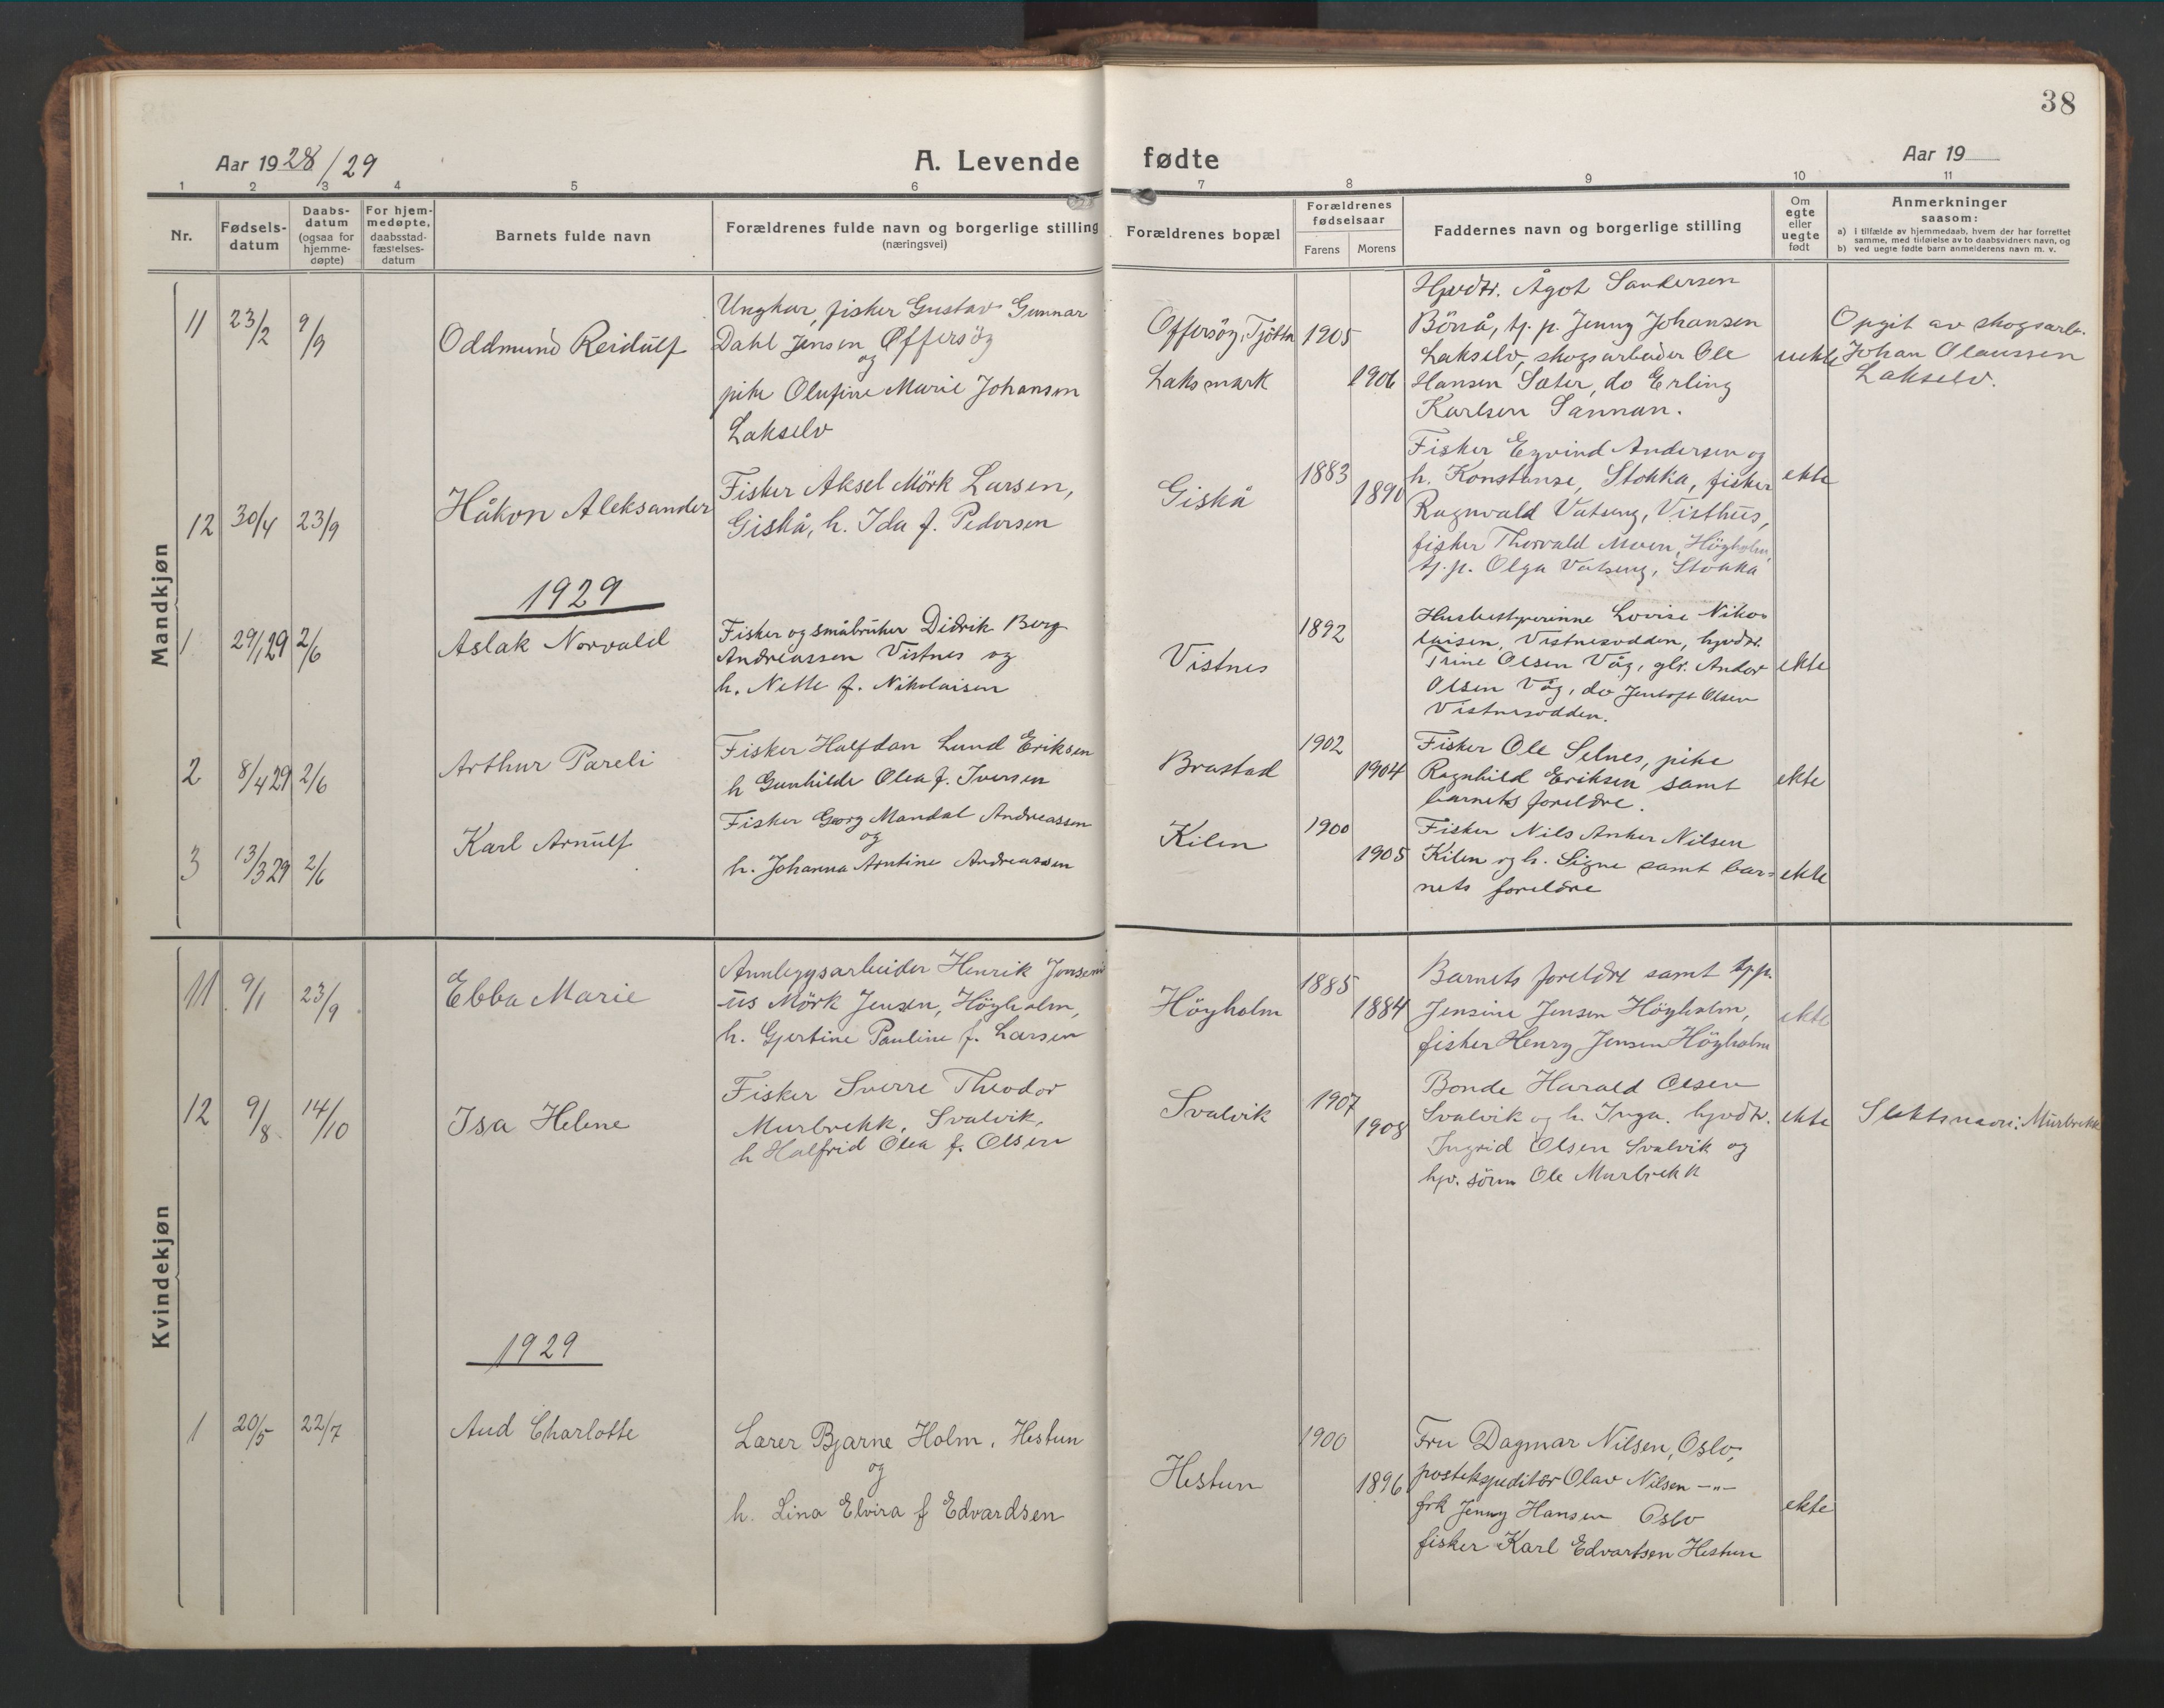 38
Aar 1928/29
A. Levende
fødte
Aar 19
1 2 3 4 5 6 7 8 9 10 11
Nr.
Fødsels-
datum
Daabs-
datum
(ogsaa for
hjemme-
døpte)
For hjem-
medøpte,
daabsstad-
fæstelses-
datum
Barnets fulde navn
Forældrenes fulde navn og borgerlige stilling
(næringsvei)
Forældrenes bopæl
Forældrenes
fødselsaar
Farens Morens
Faddernes navn og borgerlige stilling
Om
egte
eller
uegte
født
Anmerkninger
saasom:
a) i tilfælde av hjemmedaab, hvem der har forrettet
samme, med tilføielse av to daabsvidners navn, og
b) ved uegte fødte barn anmelderens navn m. v.
Mandkjøn
11 23/2 9/9
Oddmund Reidulf
Ungkar, fisker Gustav Gunnar
Dahl Jensen Offersöy
og
pike Olufine Marie Johansen
Lakselv
Offersöy, Tjötta
Laksmark
1905
1906
Hjvdtr. Ågot Sandersen
Bönå, tj. p. Jenny Johansen
Lakselv, skogsarbeider Ole
Hansen Sæter, do Erling
Karlsen Sannan.
uekte
Opgit av skogsarb.
Johan Olaussen
Lakselv.
12 30/4 23/9
Håkon Aleksander
Fisker Aksel Mörk Larsen,
Giskå, h. Ida f. Pedersen
Giskå
1883
1890
Fisker Eyvind Andersen og
h. Konstanse, Stokka, fisker
Ragnvald Vatseng, Visthus,
fisker Thorvald Moen, Höyholm,
tj. p. Olga Vatseng, Stokka
ekte
1929
1 29/1 29 2/6
Aslak Norvald
Fisker og småbruker Didrik Berg
Andreassen Vistnes og
h. Nette f. Nikolaisen
Vistnes
1892
Husbestyrerinne Lovise Niko-
laisen, Vistnesodden, hjvdtr.
Trine Olsen Våg, glr. Andor
Olsen Våg, do Jentoft Olsen
Vistnesodden.
ekte
2 8/4 29 2/6
Arthur Pareli
Fisker Halfdan Lund Eriksen
h Gunhilde Olea f. Iversen
Brastad
1902
1904
Fisker Ole Selnes, pike
Ragnhild Eriksen samt
barnets foreldre.
ekte
3 13/3 29 2/6
Karl Arnulf
Fisker Georg Mandal Andreassen
og
h. Johanna Arntine Andreassen
Kilen
1900
1905
Fisker Nils Anker Nilsen
Kilen og h. Signe samt bar-
nets foreldre
ekte
Kvindekjøn
11 9/1 23/9
Ebba Marie
Annleggsarbeider Henrik Jonseni
-us Mörk Jensen, Höyholm,
h. Gjertine Pauline f. Larsen
Höyholm
1885
1884
Barnets foreldre samt tj.p.
Jensine Jensen Höyholm,
fisker Henry Jensen Höyholm
ekte
12 9/8 14/10
Isa Helene
Fisker Sverre Theodor
Murbrekk, Svalvik,
h Halfrid Olea f. Olsen
Svalvik
1907
1908
Bonde Harald Olsen
Svalvik og h. Inga. hjvdtr.
Ingrid Olsen Svalvik og
hjv. sönn Ole Murbrekk
ekte
Slektsnavn: Murbrekk
1929
1 20/5 22/7
Aud Charlotte
Lærer Bjarne Holm, Hestun
og
h. Lina Elvira f Edvardsen
Hestun
1900
1896
Fru Dagmar Nilsen, Oslo,
postekspeditör Olav Nilsen -"-
frk Jenny Hansen Oslo
fisker Karl Edvartsen Hestun
ekte